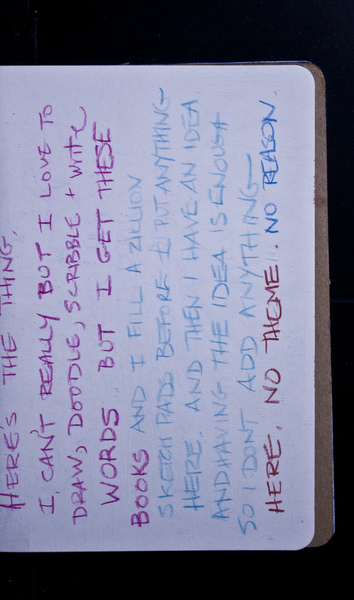 HERE'S THE THING.
I CAN'T REALLY BUT I LOVE TO
DRAW, DOODLE, SCRIBBLE + WRITE
WORDS BUT I GET THESE
BOOKS AND I FILL A ZILLION
SKETCH PADS BEFORE I PUT ANYTHING
HERE. AND THEN I HAVE AN IDEA.
AND HAVING THE IDEA IS ENOUGH
SO I DONT ADD ANYTHING
HERE. NO THEME. NO REASON.